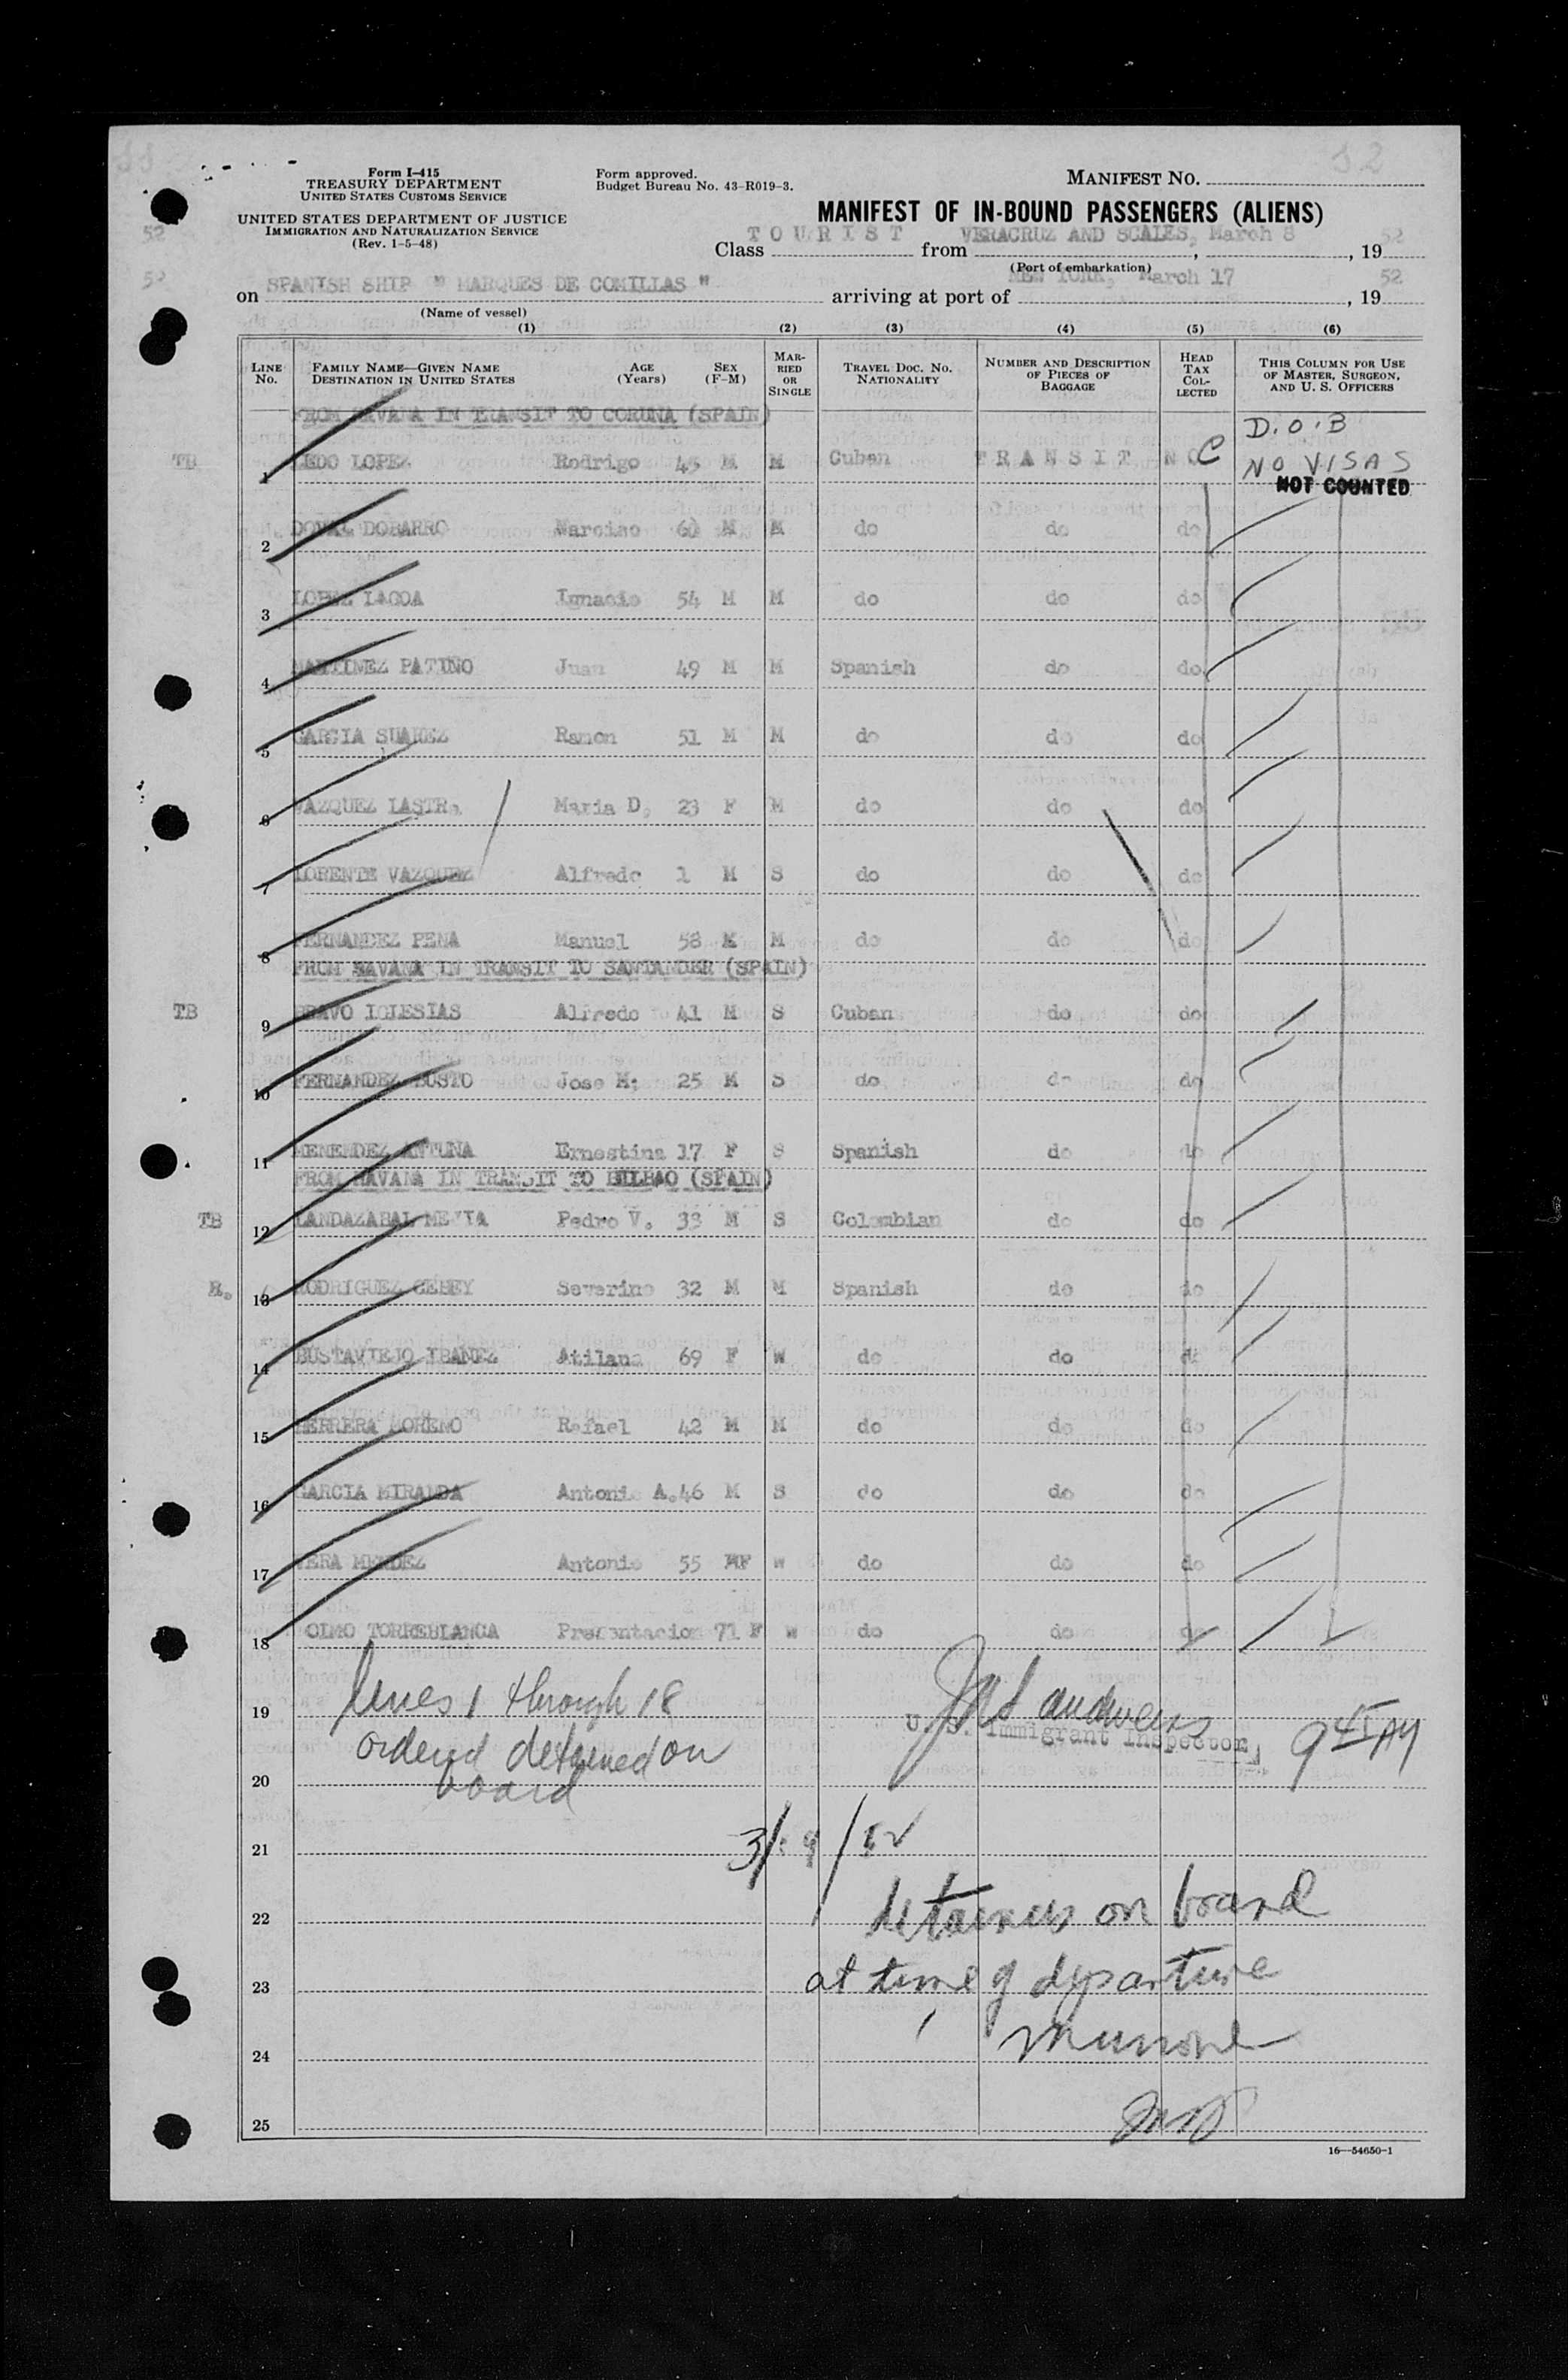 Form I-415
TREASURY DEPARTMENT
UNITED STATES CUSTOMS SERVICE
UNITED STATES DEPARTMENT OF JUSTICE
IMMIGRATION AND NATURALIZATION SERVICE
(Rev. 1-5-48)
Form approved.
Budget Bureau No. 43-R019-3.
MANIFEST NO.
MANIFEST OF IN-BOUND PASSENGERS (ALIENS)
Class TOURIST from VERACRUZ AND SCALES, March 8, 19 52
(Port of embarkation)
on SPANISH SHIP " MARQUES DE COMILLAS " arriving at port of NEW YORK, March 17, 19 52
(Name of vessel)
(1) (2) (3) (4) (5) (6)
LINE No. FAMILY NAME—GIVEN NAME DESTINATION IN UNITED STATES AGE (Years) SEX (F-M) MARRIED OR SINGLE TRAVEL DOC. NO. NATIONALITY NUMBER AND DESCRIPTION OF PIECES OF BAGGAGE HEAD TAX COLLECTED THIS COLUMN FOR USE OF MASTER, SURGEON, AND U. S. OFFICERS
FROM HAVANA IN TRANSIT TO CORUNA (SPAIN)
D.O.B
TB 1 LEDO LOPEZ Rodrigo 45 M M Cuban TRANSIT NO C NO VISAS
NOT COUNTED
2 DOVAL DOBARRO Narciso 60 M M do do do
3 LOPEZ LAGOA Ignacio 54 M M do do do
4 MARTINEZ PATIÑO Juan 49 M M Spanish do do
5 GARCIA SUAREZ Ramon 51 M M do do do
6 VAZQUEZ LASTRA Maria D, 23 F M do do do
7 LORENTE VAZQUEZ Alfredo 1 M S do do do
8 FERNANDEZ PENA Manuel 58 M M do do do
FROM HAVANA IN TRANSIT TO SANTANDER (SPAIN)
TB 9 BRAVO IGLESIAS Alfredo 41 M S Cuban do do
10 FERNANDEZ BUSTO Jose M; 25 M S do do do
11 MENENDEZ ANTUNA Ernestina 17 F S Spanish do do
FROM HAVANA IN TRANSIT TO BILBAO (SPAIN)
TB 12 LANDAZABAL Pedro V. 33 M S Colombian do do
R. 13 RODRIGUEZ Severino 32 M M Spanish do do
14 BUSTAVIEJO IBAÑEZ Atilana 69 F W do do do
15 HERRERA MORENO Rafael 42 M M do do do
16 GARCIA MIRANDA Antonio A. 46 M S do do do
17 VERA MENDEZ Antonio 55 F W do do do
18 OLMO TORREBLANCA Presentacion 71 F W do do do
19 lines 1 through 18
ordered detained on
20 board
U. S. Immigrant Inspector
21
22 detainees on board
23 at time of departure
24
25
16—54650-1